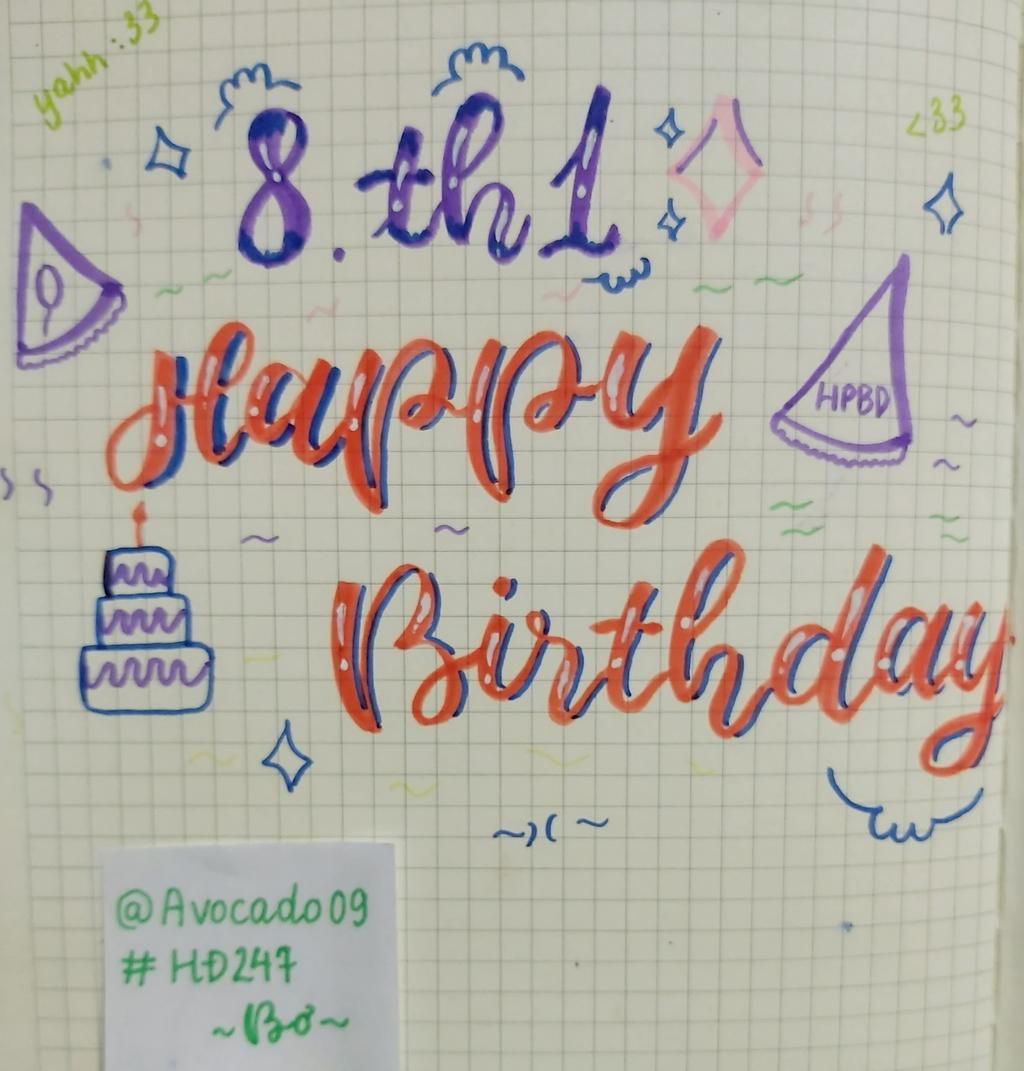 yahh :33
8.th1
<33
Happy
HPBD
Birthday
@Avocado09
#HĐ247
~Bơ~